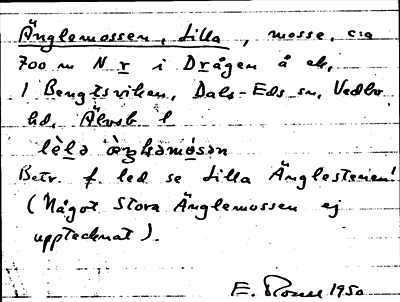 Änglemossen, Lilla, mosse, c:a
700 m N r i Drågen å ek,
1 Bengtsviken, Dals-Eds sn, Vedbo
hd, Älvsb l
Betr. f. led se Lilla Änglestenen!
(Något Stora Änglemossen ej
upptecknat).
E. 1950